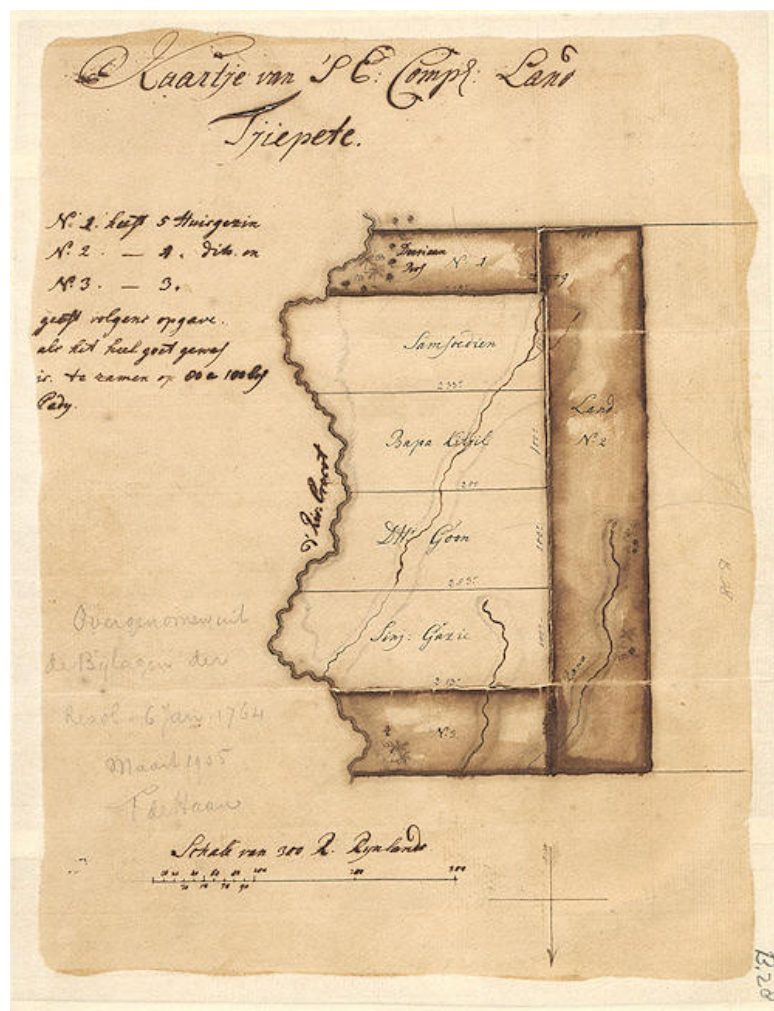 Kaartje van 'S E: Comp: Land
Tjiepete.
N: 1. heeft 5 Huisgezin
N: 2. — 4. dito. en
N: 3. — 3.
geeft volgens opgave.
als het heel goet gewas
is. te zamen op 80 a 100 bos
Pady.
Doeriaan
Bos
N: 1
Samsoedien
235
Bapa Ketjil
200
Land
N: 2
Goon
Sinj: Gazie
N: 3
Overgenomen uit
de Bijlagen der
Resol. 6 Jan. 1764
Maart 1905
F de Haan
Schale van 300 R. Rynlands
100 200 300
B.28